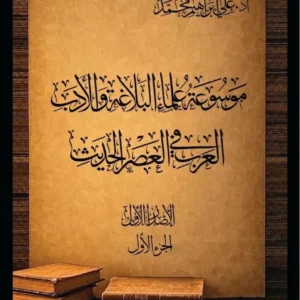 أ.د. علي إبراهيم محمد
موسوعة علماء البلاغة والأدب
العرب في العصر الحديث
الإصدار الأول
الجزء الأول